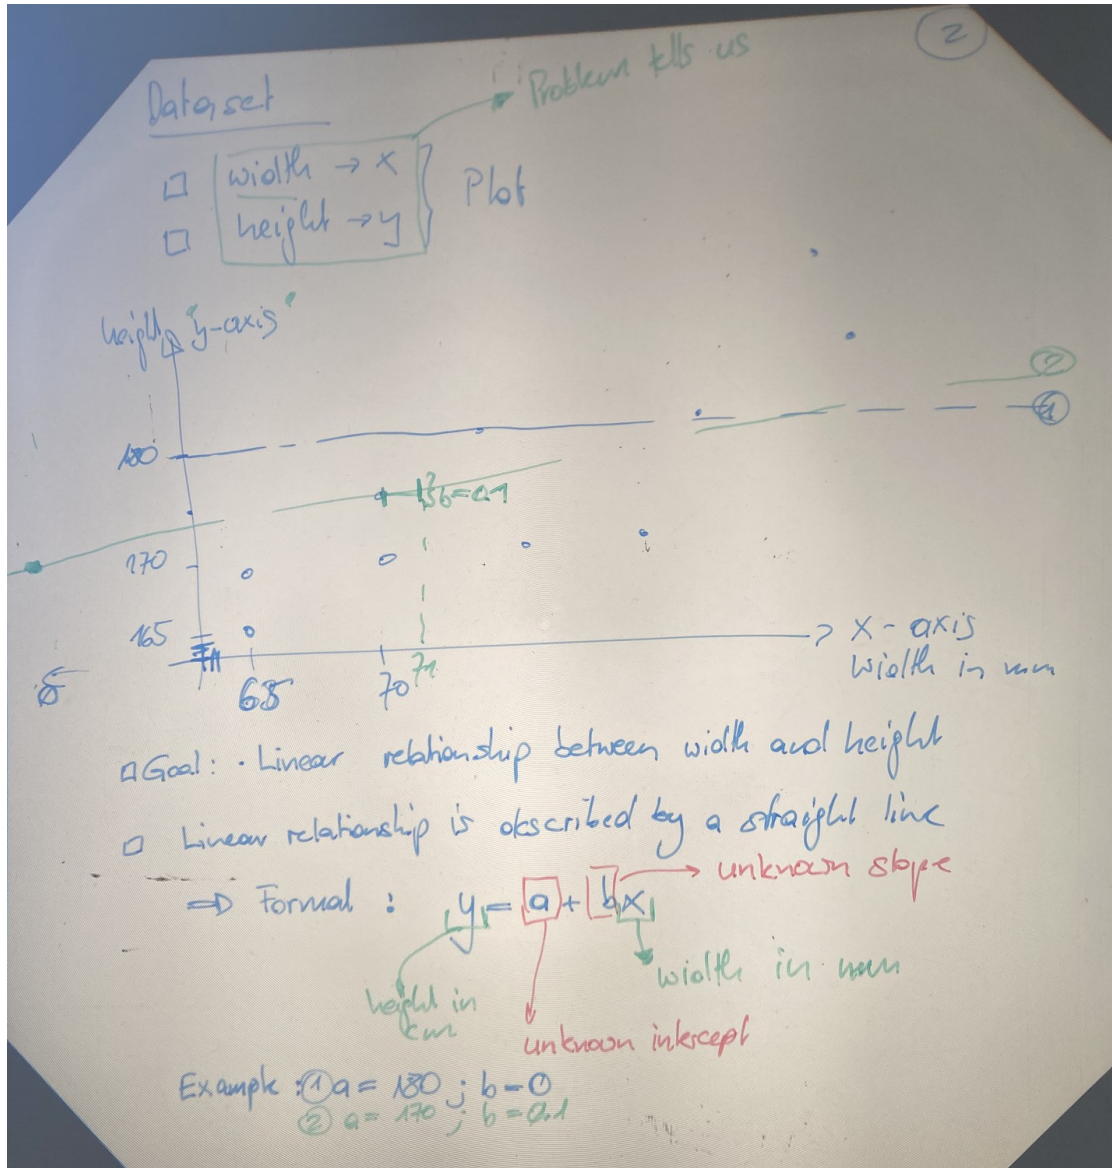 2
Problem tells us
Dataset
□ width → x
□ height → y
Plot
height "y-axis"
2
1
180
b=0.1
170
165
x-axis
width in mm
68
70
71
□ Goal: · Linear relationship between width and height
□ Linear relationship is described by a straight line
⇒ Formal : y = a + bx
unknown slope
width in mm
height in cm
unknown intercept
Example: ① a = 180 ; b = 0
② a = 170 ; b = 0.1